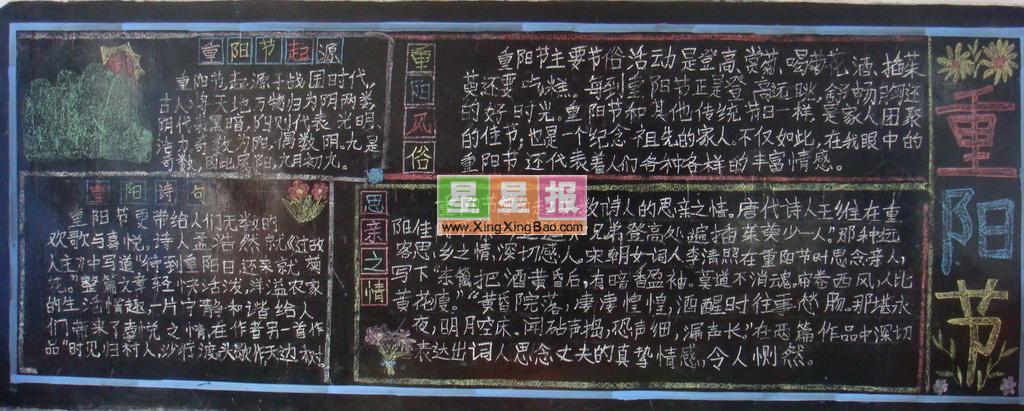 重阳节起源
重阳节起源于战国时代,
古人将天地万物归为阴阳两类
阴代表黑暗,阳则代表光明
活力。奇数为阳,偶数阴。九是
奇数,因此属阳,九月初九。
重阳风俗
重阳节主要节俗活动是登高、赏菊、喝菊花酒、插茱
萸还要吃糕。每到重阳节正是登高远眺,舒畅胸怀
的好时光。重阳节和其他传统节日一样,是家人团聚
的佳节;也是一个纪念祖先的家人。不仅如此,在我眼中的
重阳节还代表着人们各种各样的丰富情感。
重阳诗句
重阳节更带给人们无数的
欢歌与喜悦。诗人孟浩然就《过故
人庄》中写道"待到重阳日,还来就菊
花。"整篇文章轻快活泼,洋溢农家
的生活情趣,一片宁静和谐给人
们带来了喜悦之情,在作者另一首作
品"时见归村人,沙行渡头歇。天边树
思亲之情
诗人的思亲之情。唐代诗人王维在重
阳佳
兄弟登高处,遍插茱萸少一人。"那种远
客思乡之情,深切感人。宋朝女词人李清照在重阳节时思念亲人,
写下"东篱把酒黄昏后,有暗香盈袖。莫道不消魂,帘卷西风,人比
黄花瘦。""黄昏院落,凄凄惶惶,酒醒时往事愁肠。那堪永
夜,明月空床。闻砧声捣,恐声细,漏声长。"在两篇作品中深切
表达出词人思念丈夫的真挚情感,令人恻然。
重阳节
星星报
www.XingXingBao.com